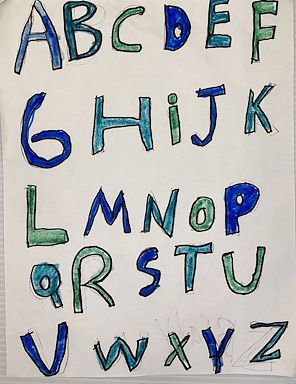 ABCDEF
GHiJK
LMNOP
QRSTU
VWXYZ